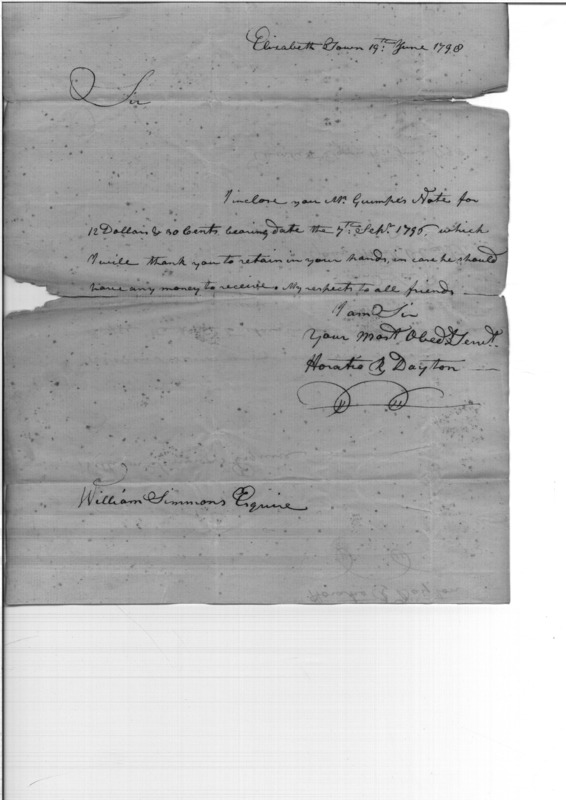 Elizabeth Town 19th. June 1798
Sir
I inclose you Mr. Gumpe's Note for
12 Dollars & 30 Cents bearing date the 7th. Sept. 1796 which
I will thank you to retain in your hands, in case he should
have any money to receive. My respects to all friends
I am Sir
Your Most. Obedt. Servt.
Horatio R Dayton
William Simmons Esquire